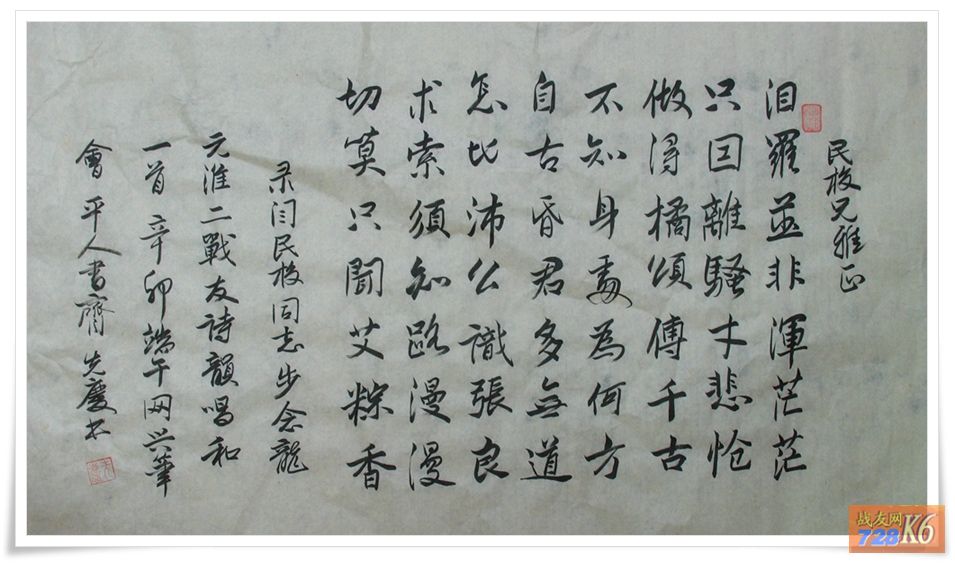 民校兄雅正
汨羅並非渾茫茫
只因離騷才悲愴
做得橘頌傳千古
不知身處為何方
自古昏君多無道
怎比沛公識張良
求索須知路漫漫
切莫只聞艾粽香
录闫民校同志步念龍
元淮二戰友詩韻唱和
一首辛卯端午网兴筆
會平人書齋先慶书
战友网
728K6